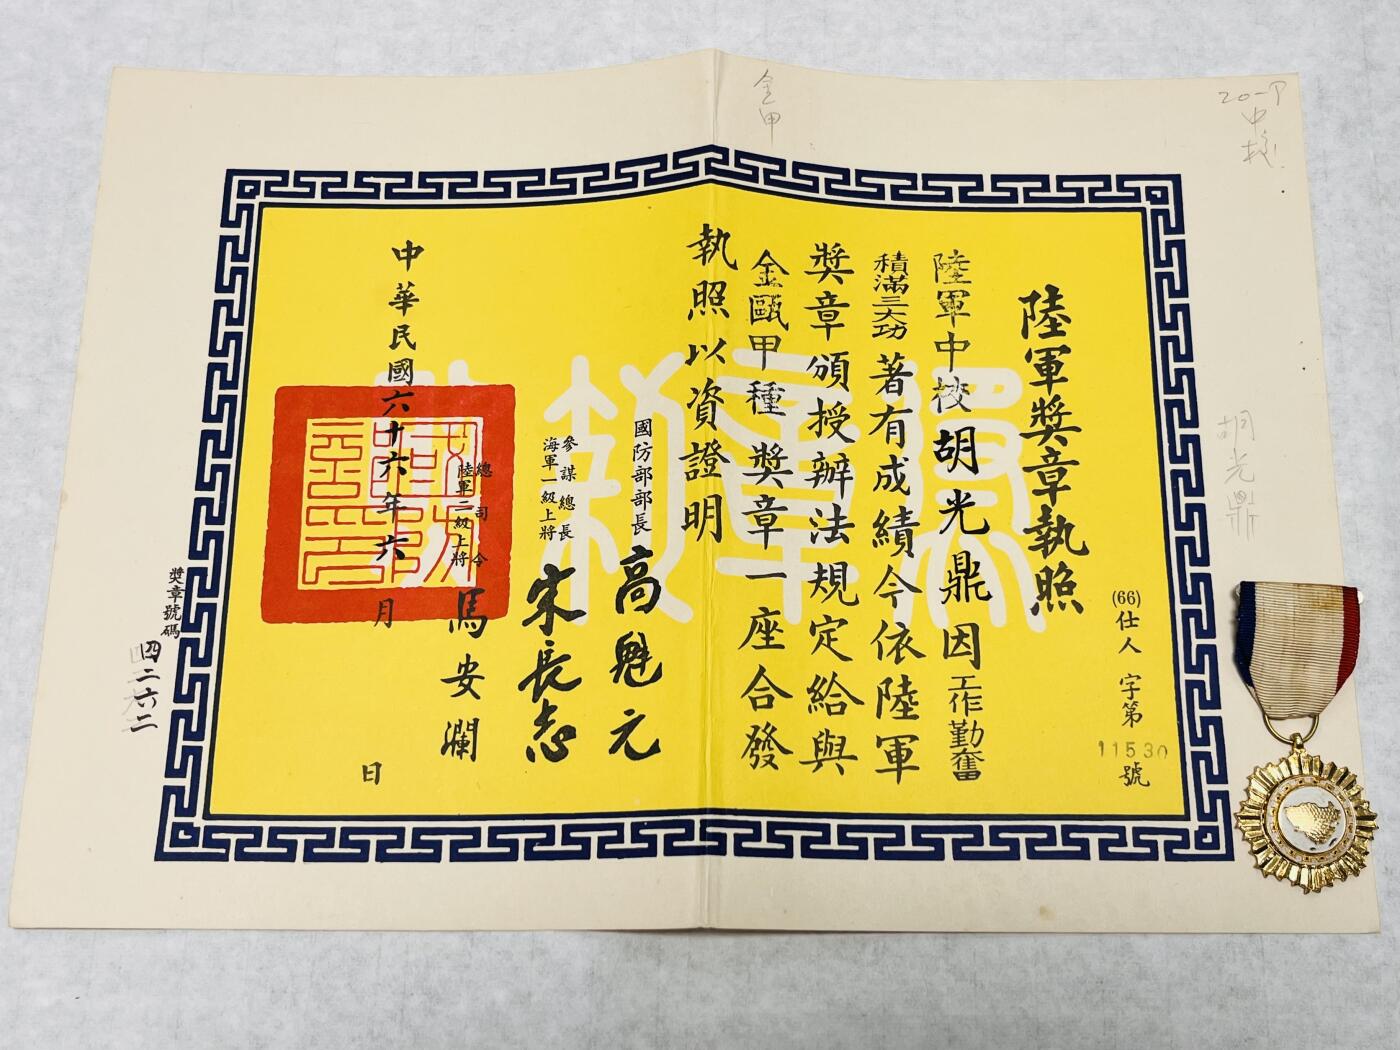 20-P
中校
胡光鼎
金甲
陸軍獎章執照
(66)仕人字第11530號
陸軍中校胡光鼎因工作勤奮
積滿三大功著有成績今依陸軍
獎章頒授辦法規定給與
金甌甲種獎章一座合發
執照以資證明
國防部部長高魁元
參謀總長
海軍一級上將宋長志
總司令
陸軍二級上將馬安瀾
中華民國六十六年六月日
獎章號碼四二六二
獎章執